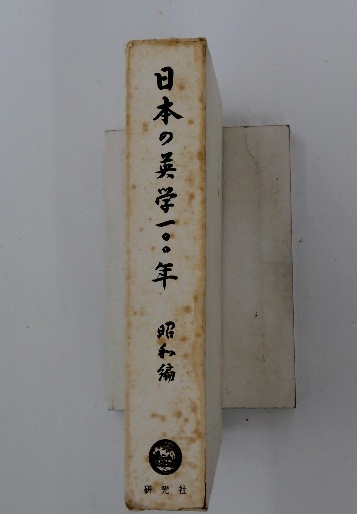 日本の英学一〇〇年
昭和編
研究社